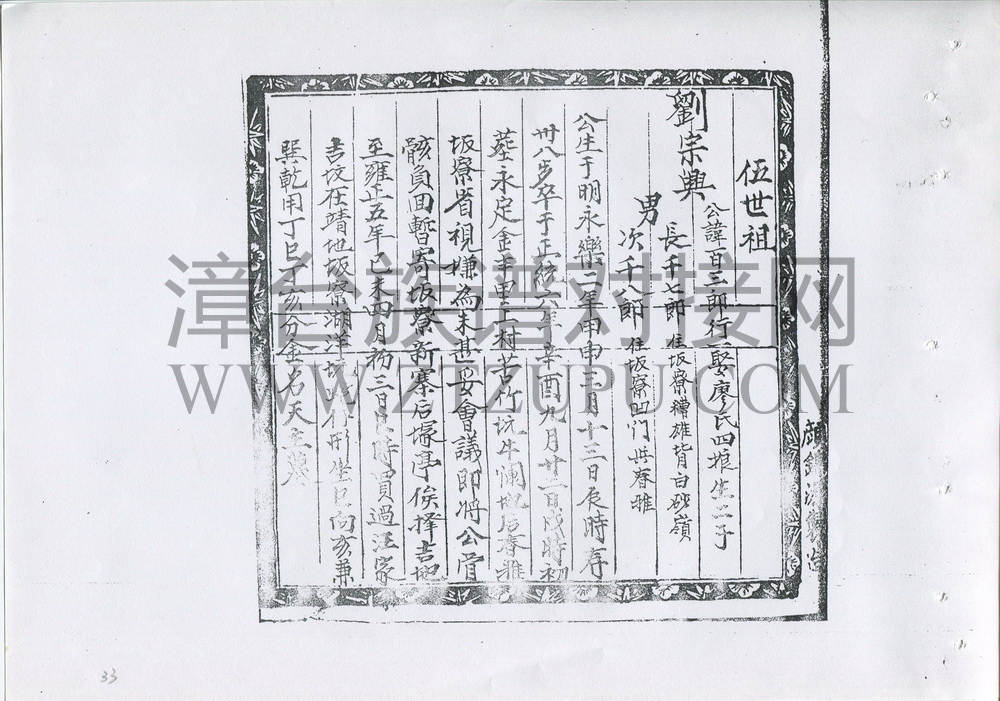 伍世祖
劉宗興
公諱百三郎行一娶廖氏四娘生二子
男
長千七郎 住坂寮糟雄背白砂嶺
次千八郎 住坂寮凹門共春雅
公生于明永樂二年甲申三月十三日辰時存
卅八岁卒于正統六年辛酉九月廿二日戌時初
塟永定金丰里上村苦竹坑牛阑 后春雅
坂寮省視嫌為未甚妥會議即将公骨
骸負回暫寄坂寮新寨后壕亭俟擇吉地
至雍正五年己未四月初三日 時買過汪家
吉坟在靖地坂寮湖洋 形坐巳向亥兼
巽乾用丁巳丁亥分金名天主墓
漳台族谱对接网
WWW.ZTZUPU.COM
33